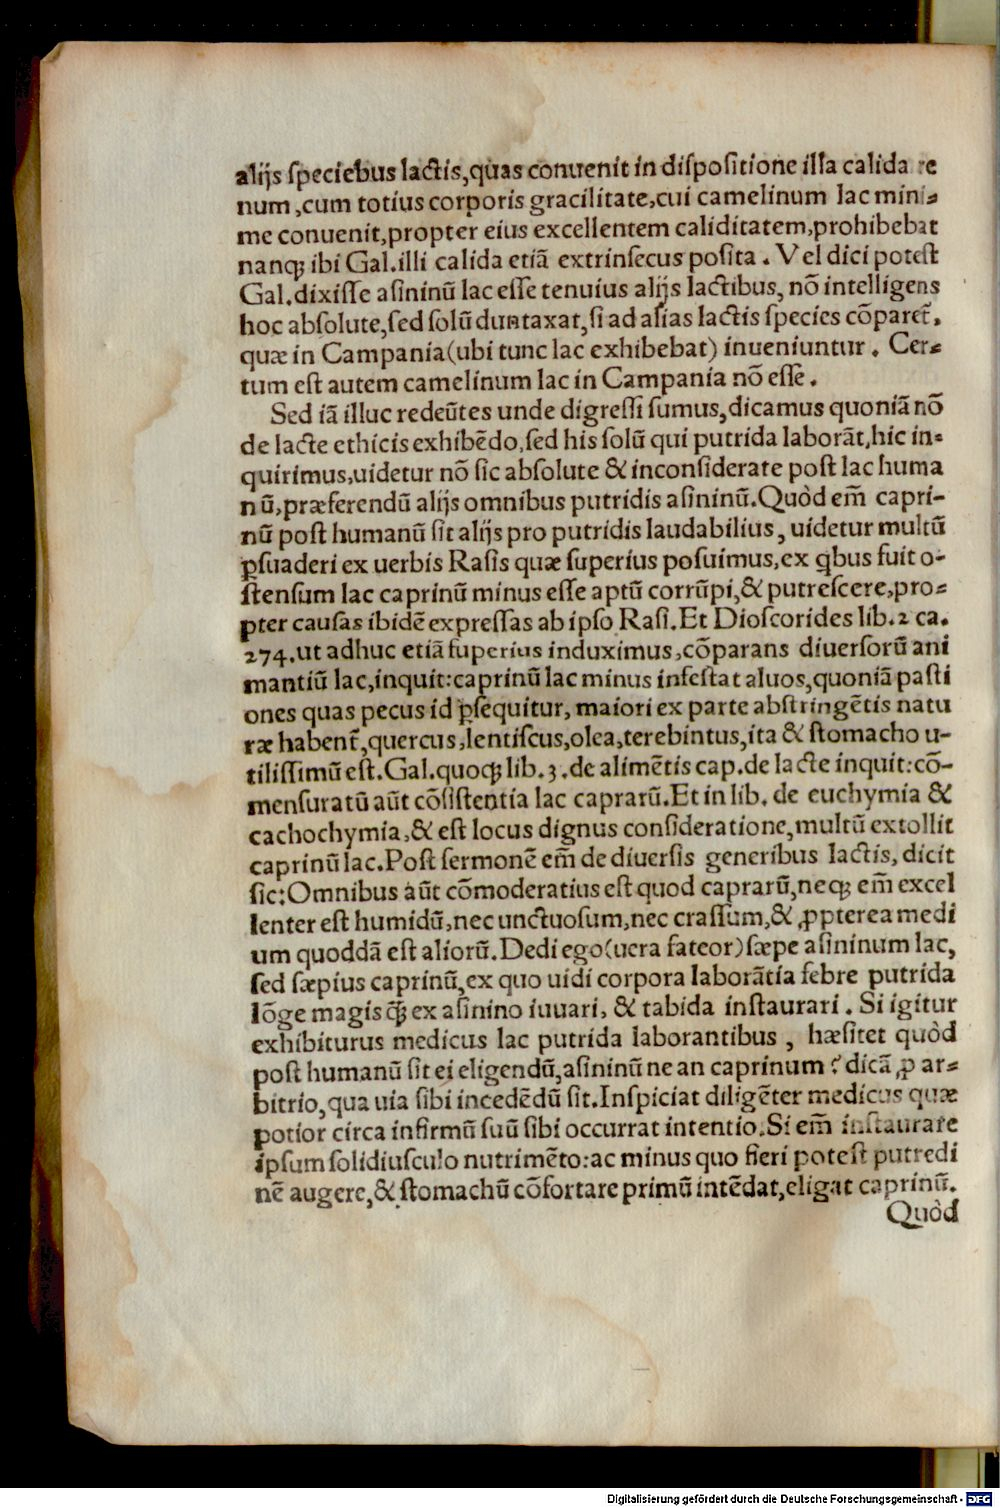 alijs speciebus lactis,quas conuenit in dispositione illa calida re
num,cum totius corporis gracilitate,cui camelinum lac mini⸗
me conuenit,propter eius excellentem caliditatem,prohibebat
nanqꝫ ibi Gal.illi calida etiã extrinsecus posita. Vel dici potest
Gal.dixisse asininũ lac esse tenuius alijs lactibus, nõ intelligens
hoc absolute,sed solũ duntaxat,si ad alias lactis species cõparet̃.
quæ in Campania(ubi tunc lac exhibebat) inueniuntur. Cer⸗
tum est autem camelinum lac in Campania nõ esse.
Sed iã illuc redeũtes unde digressi sumus,dicamus quoniã nõ
de lacte ethicis exhibẽdo,sed his solũ qui putrida laborãt,hic in⸗
quirimus,uidetur nõ sic absolute & inconsiderate post lac huma
nũ,præferendũ alijs omnibus putridis asininũ.Quòd em̃ capri-
nũ post humanũ sit alijs pro putridis laudabilius, uidetur multũ
ꝑsuaderi ex uerbis Rasis quæ superius posuimus,ex q̃bus fuit o-
stensum lac caprinũ minus esse aptũ corrũpi,& putrescere,pro⸗
pter causas ibidẽ expressas ab ipso Rasi.Et Dioscorides lib.2 ca.
274.ut adhuc etiã superius induximus,cõparans diuersorũ ani
mantiũ lac,inquit:caprinũ lac minus infestat aluos,quoniã pasti
ones quas pecus id ꝑsequitur, maiori ex parte abstringẽtis natu
ræ habent̃,quercus,lentiscus,olea,terebintus,ita & stomacho u-
tilissimũ est.Gal.quoqꝫ lib.3.de alimẽtis cap.de lacte inquit:cõ-
mensuratũ aũt cõsistentia lac caprarũ.Et in lib. de euchymia &
cachochymia,& est locus dignus consideratione,multũ extollit
caprinũ lac.Post sermonẽ em̃ de diuersis generibus lactis, dicit
sic:Omnibus aũt cõmoderatius est quod caprarũ,neqꝫ em̃ excel
lenter est humidũ,nec unctuosum,nec crassum,& ꝓpterea medi
um quoddã est aliorũ.Dedi ego(uera fateor)sæpe asininum lac,
sed sæpius caprinũ,ex quo uidi corpora laborãtia febre putrida
lõge magis q̃ꝫ ex asinino iuuari, & tabida instaurari. Si igitur
exhibiturus medicus lac putrida laborantibus, hæsitet quòd
post humanũ sit ei eligendũ,asininũ ne an caprinum? dicã ꝓ ar⸗
bitrio,qua uia sibi incedẽdũ sit.Inspiciat diligẽter medicus quæ
potior circa infirmũ suũ sibi occurrat intentio.Si em̃ instaurare
ipsum solidiusculo nutrimẽto:ac minus quo fieri potest putredi
nẽ augere,& stomachũ cõfortare primũ intẽdat,eligat caprinũ.
Quòd
Digitalisierung gefördert durch die Deutsche Forschungsgemeinschaft - DFG